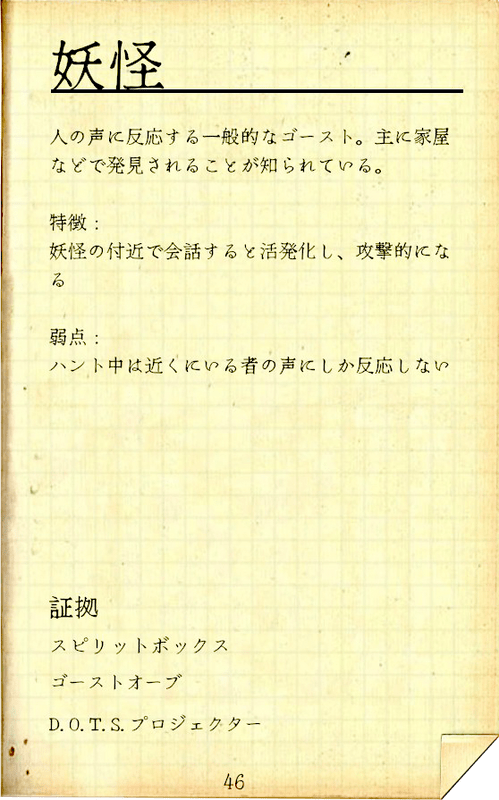 妖怪
人の声に反応する一般的なゴースト。主に家屋
などで発見されることが知られている。
特徴：
妖怪の付近で会話すると活発化し、攻撃的にな
る
弱点：
ハント中は近くにいる者の声にしか反応しない
証拠
スピリットボックス
ゴーストオーブ
D.O.T.S.プロジェクター
46